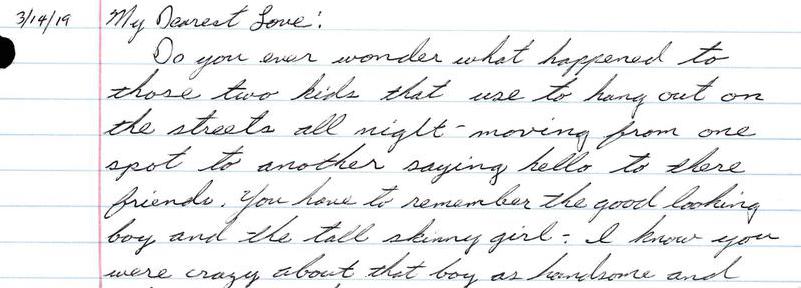 3/14/19 My Dearest Love:
Do you ever wonder what happened to
those two kids that use to hang out on
the streets all night - moving from one
spot to another saying hello to there
friends. You have to remember the good looking
boy and the tall skinny girl - I know you
were crazy about that boy as handsome and